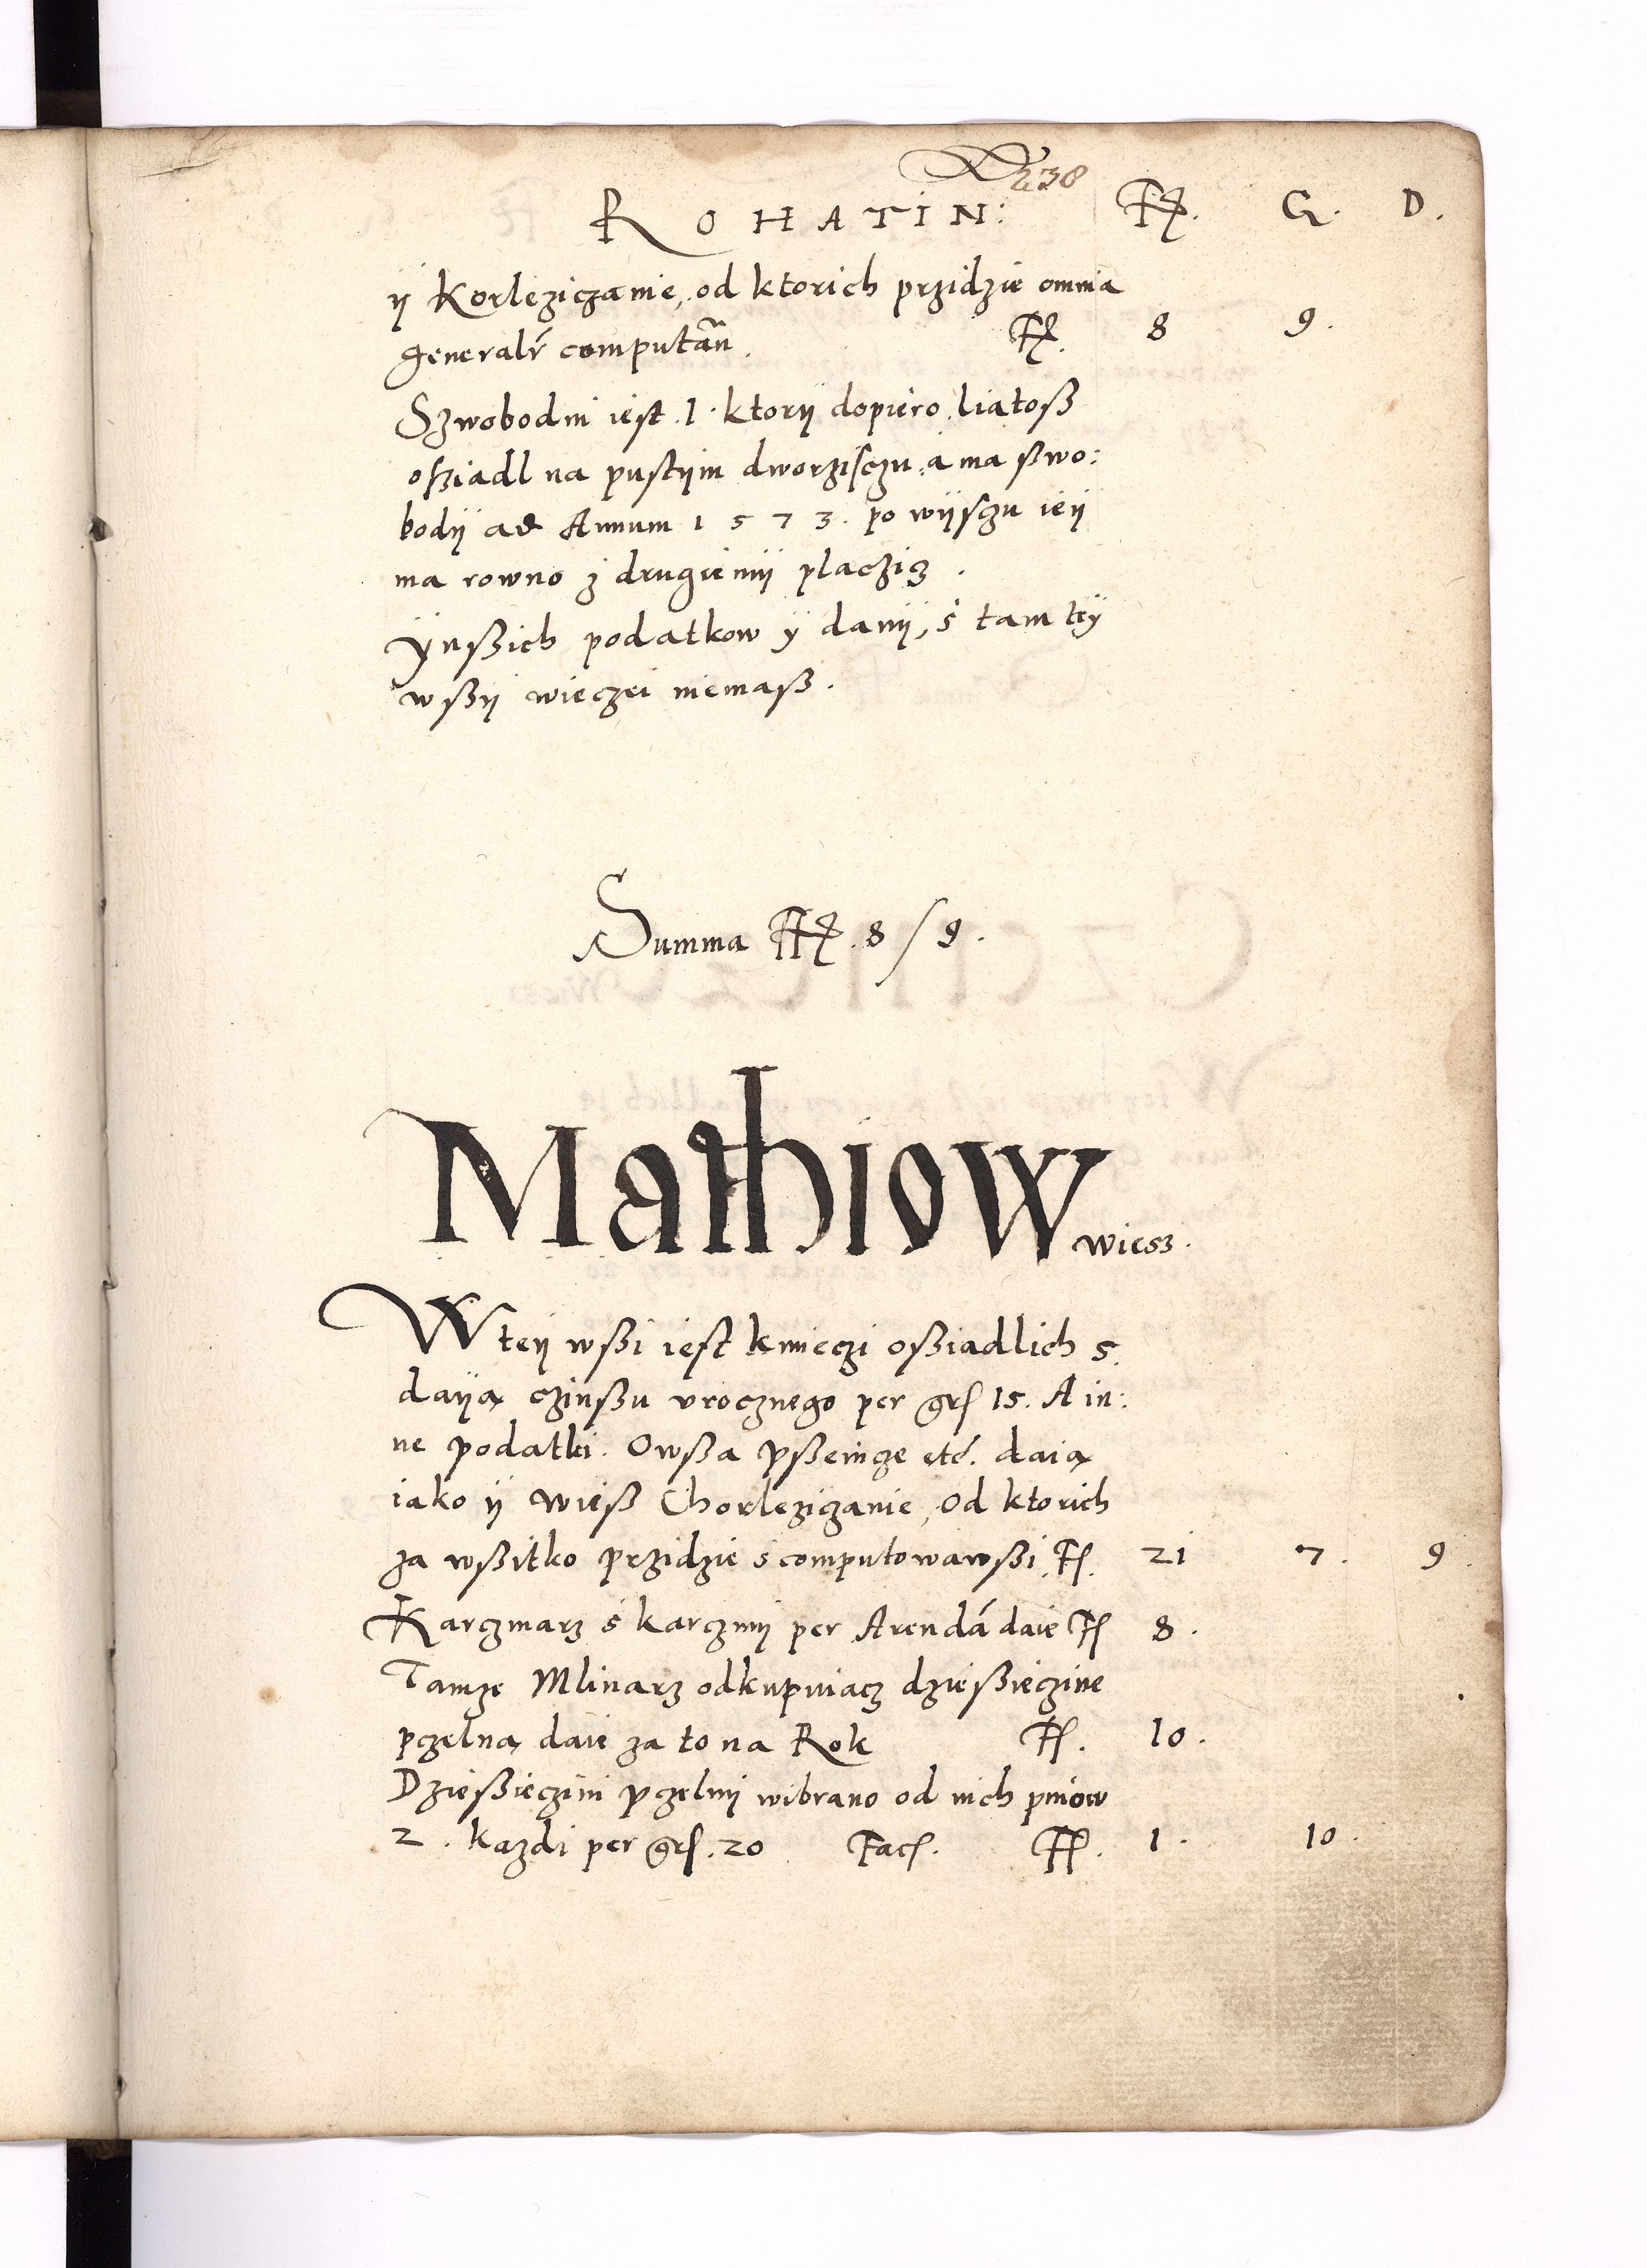 238
ROHATIN: Fl. G. D.
ij Korleziczanie, od ktorich przidzie omnia
generalr computan̄. Fl. 8 9.
Szwobodni iest .1. ktorij dopiero liatosß
osßiadl na pustijm dworzisczu, a ma sßwo:
bodij ad Annum 1573. po wijsczu ieij
ma rowno z drugiemij placzicz.
ÿnsßich podatkow y danij, s tam teij
wsßij wieczei niemasß.
Summa Fl. 8 / 9.
Mathiow wiesz.
W teij wsßi iest kmieczi osßiadlich 5.
daiją czinsßu urocznego per grs 15. A in:
ne podatki. Owsßa psßenicze etc. daią
iako ij wiesß Chorleziczanie, Od ktorich
za wsßitko przidzie s computowawsßi Fl. 21 7. 9.
Karczmarz s karczmij per Arendā daie Fl 8.
Tamze Mlinarz odkupuiacz dziesßieczine
pczelną daie za to na Rok Fl. 10.
Dziesßieczini pczelnij wibrano od nich pniow
2. kazdi per grs. 20 Fac. Fl. 1. 10.